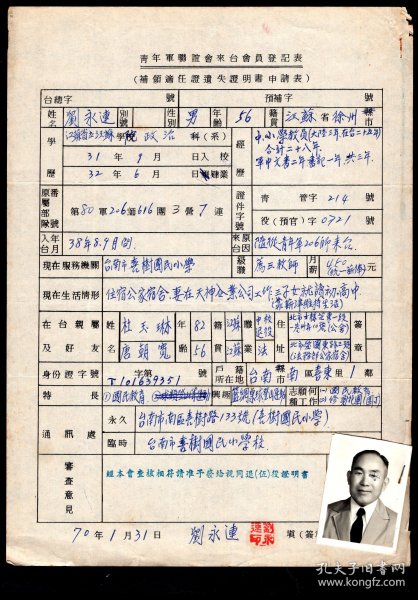 青年軍聯誼會來台會員登記表
(補領適任證遺失證明書申請表)
台總字 號 預補字 號
姓名 劉永連 別號 性別 男 年齡 56 籍貫 江蘇省徐州縣市
學歷 政治科(系)
31年9月日入校
32年6月日肄業
經歷 中、小學教員(大陸三年,在台二十五年)
合計二十八年
軍中文書二年 共三年
原屬部隊番號 第80軍206師616團3營7連
證件字號 青管字214號
役(預官)字0721號
入台年月 38年8月間
來台原因 隨從青年軍206師來台
現在服務機關 台南市喜樹國民小學
級職 薦三教師 月薪 元
現在生活情形 住宿公家宿舍,妻在天神企業公司工作,三子女就讀初高中
在台親屬及好友 姓名 杜天琳 年齡 82 籍貫 江蘇 職業 住址
唐韻寬 56 江蘇 法
身份證字號 字第 號
T101639351
戶籍所在地 台南市南區喜東里1鄰
特長 ①國民教育 興趣 志願何種工作
通訊處 永久 台南市南區喜樹路133號(喜樹國民小學)
臨時 台南市喜樹國民小學校
審查意見 經本會查核相符請准予發給視同退(伍)役證明書
70年1月31日 劉永連 填(簽
孔夫子旧书网
www.kongfz.com